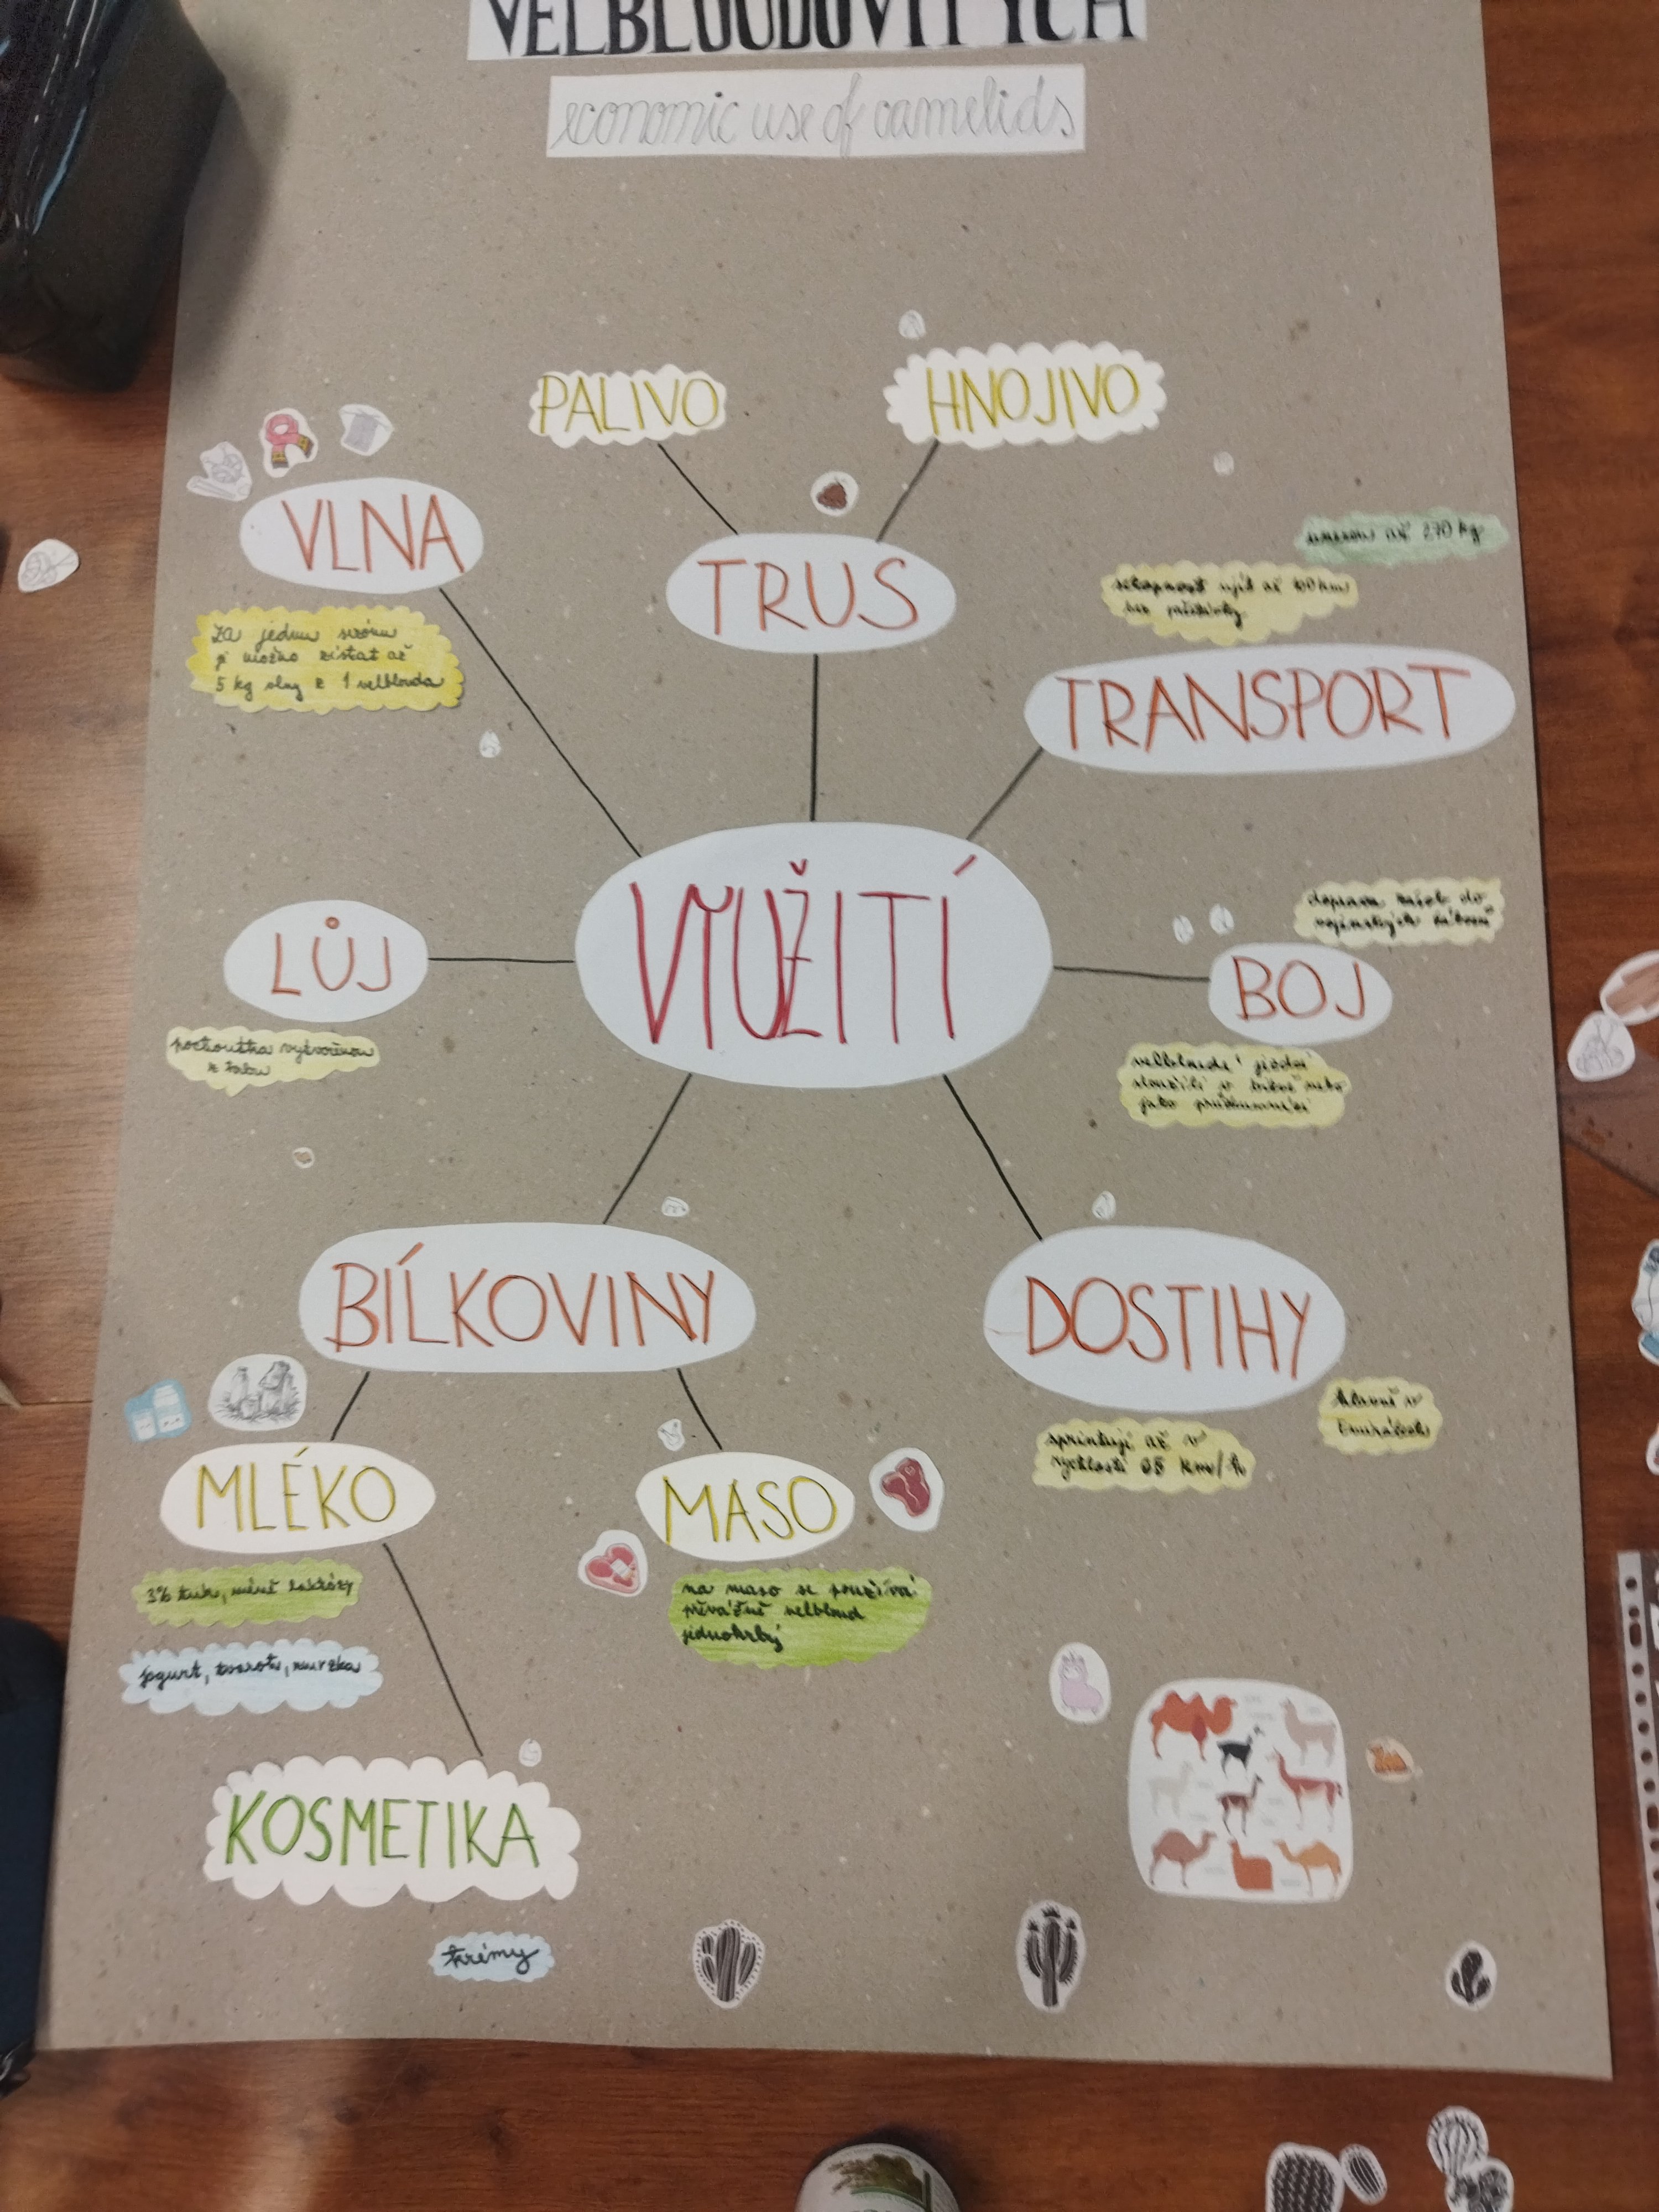 VELBLOUDOVITÝCH
economic use of camelids
PALIVO
HNOJIVO
VLNA
TRUS
za jednu sezónu
je možno získat až
5 kg vlny z 1 velblouda
unesou až 270 kg
schopnost ujít až 100 km
bez přestávky
TRANSPORT
VYUŽITÍ
LŮJ
pochoutka vytvořenou
z
doprava zásob do
vojenských táborů
BOJ
velbloudi jezdci
sloužili v bitvě nebo
jako průzkumníci
BÍLKOVINY
DOSTIHY
hlavně v
Emirátech
sprintují až v
rychlosti 65 km/h
MLÉKO
MASO
3% tuku, méně laktózy
jogurt, tvaroh, zmrzka
na maso se používá
převážně velbloud
jednohrbý
KOSMETIKA
krémy